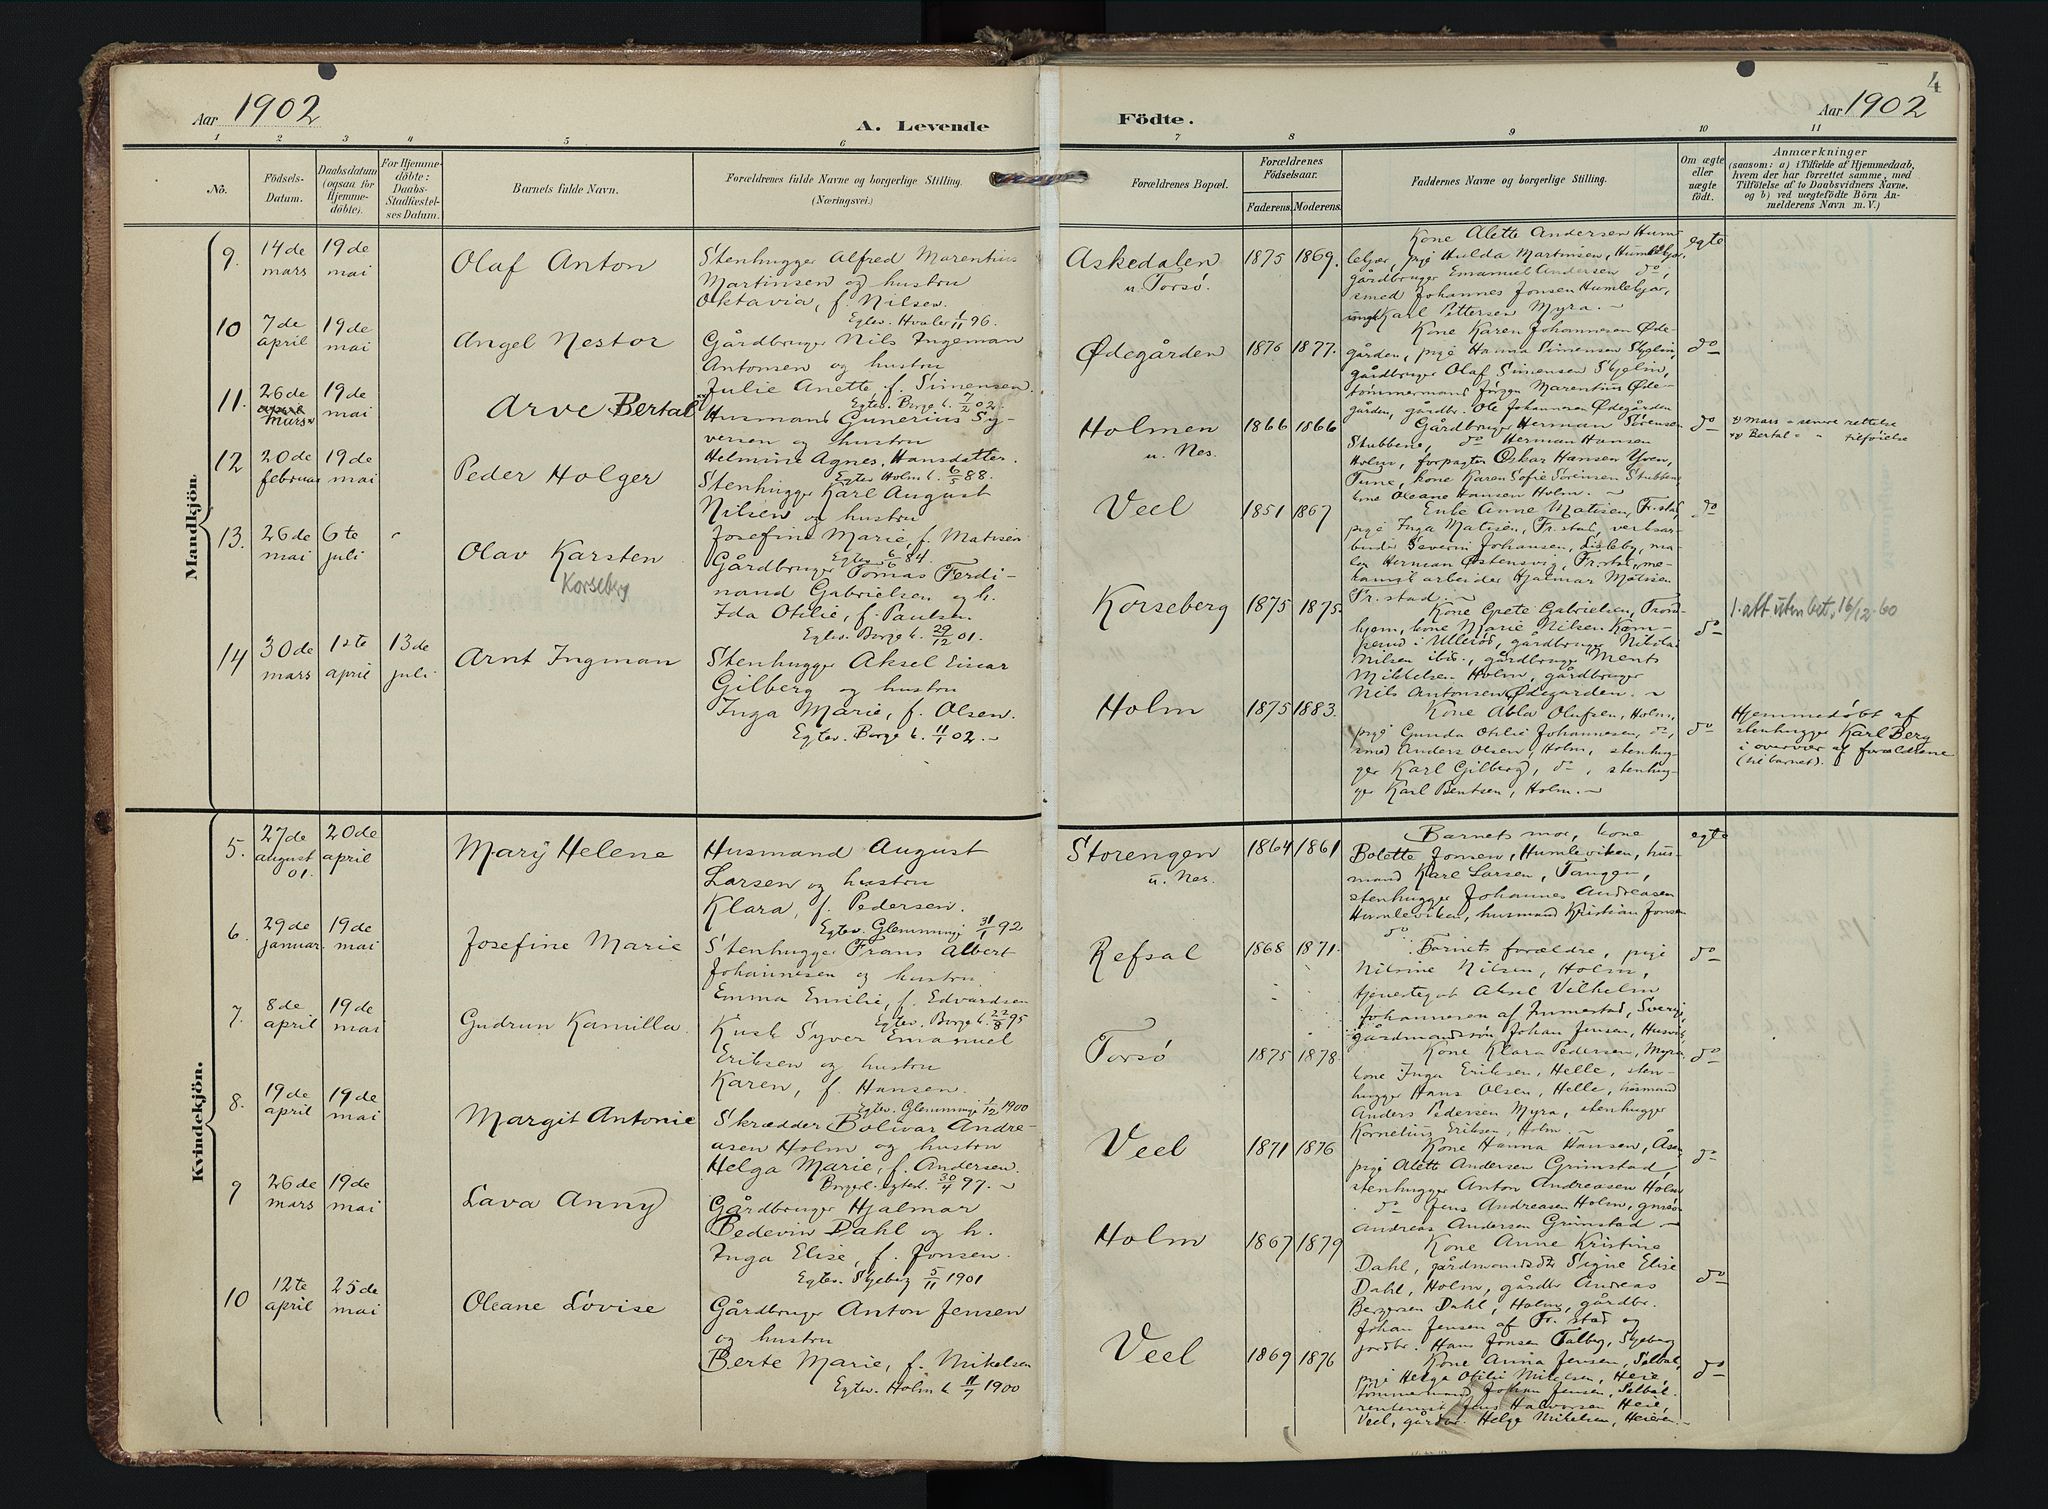 4
Aar 1902
A. Levende
Födte.
Aar 1902
1 2 3 4 5 6 7 8 9 10 11
No.
Födsels-
Datum.
Daabsdatum
(ogsaa for
Hjemme-
döbte).
For Hjemme-
döbte:
Daabs-
Stadfæstel-
ses Datum.
Barnets fulde Navn.
Forældrenes fulde Navne og borgerlige Stilling.
(Næringsvei.)
Forældrenes Bopæl.
Forældrenes
Födselsaar.
Faderens. Moderens.
Faddernes Navne og borgerlige Stilling.
Om ægte
eller
uægte
födt.
Anmærkninger
(saasom: a) i Tilfælde af Hjemmedaab,
hvem der har forrettet samme, med
Tilföielse af to Daabsvidners Navne,
og b) ved uægtefödte Börn An-
melderens Navn m. V.)
Mandkjön.
9. 14de
mars
19de
mai
Olaf Anton
Stenhugger Alfred Marentius
Martinsen og hustru
Oktavia, f. Nilsen.
Egtev. Hvaler 1/11 96.
Askedalen
u. Torsø.
1875 1869.
Kone Alette Andersen Hum-
lekjær, pige Hulda Martinsen, Humlekjær,
gårdbruger Emanuel Andersen do,
smed Johannes Jonsen Humlekjær,
ungk. Karl Pettersen Myra.
egte
10 7de
april
19de
mai
Angel Nestor
Gårdbruger Nils Ingeman
Antonsen og hustru
Julie Anette f. Simensen.
Egtev. Borge k. 7/2 02.
Ødegården
1876 1877.
Kone Karen Johannesen Øde-
gården, pige Hanna Simensen Skjelin,
gårdbruger Olaf Simensen Skjelin,
tømmermand Jørgen Marentius Øde-
gården, gårdbr. Ole Johannesen Ødegården
do
11. 26de
april
Mars x
19de
mai
Arve Bertal
Husmand Gunerius Sy-
versen og hustru
Helmine Agnes, Hansdatter.
Egtev. Holm k. 6/5 88.
Holmen
u. Nes.
1866 1866
Gårdbruger Herman Sørensen
Stubbene, do Herman Hansen
Holm, forpagter Oskar Hansen Yven,
Tune, kone Karen Sofie Sørensen Stubbene
kone Oleane Hansen Holm.
do
x) mars = senere rettelse
xx) Bertal = " tilføielse
12 20de
februar
19de
mai
Peder Holger
Stenhugger Karl August
Nilsen og hustru
Josefine Marie, f. Matisen
Egtev. 6/6 84.
Veel
1851 1867
Enke Anne Matisen, Fr.stad,
pige Inga Matisen, Fr.stad, verksar-
beider Severin Johansen, Lisleby, ma-
ler Herman Østensvig, Fr.stad, me-
kanisk arbeider Hjalmar Matisen
Fr.stad.
do
13. 26de
mai
6te
juli
Olav Karsten
Korseberg
Gårdbruger Tomas Ferdi-
nand Gabrielsen og h.
Ida Otilie, f. Paulsen.
Egtev. Borge k. 29/12 01.
Korseberg
1875 1875.
Kone Grete Gabrielsen, Trond-
hjem, kone Marie Nilsen Kom-
perud i Ullerøs, gårdbruger Nikolai
Nilsen ibid., gårdbruger Ments
Mikkelsen Holm, gårdbruger
Nils Antonsen Ødegården.
do
1. att. uten bet. 16/12.60
14 30de
mars
1ste
april
13de
juli
Arnt Ingman
Stenhugger Aksel Einar
Gilberg og hustru
Inga Marie, f. Olsen.
Egtev. Borge k. 11/1 02.
Holm
1875 1883.
Kone Abla Olufsen, Holm,
pige Gunda Otilie Johannesen, do,
smed Anders Olsen, Holm, stenhug-
ger Karl Gilberg, do, stenhug-
ger Karl Bentsen, Holm.
do
Hjemmedøbt af
stenhugger Karl Berg
i overvær af forældrene
(til barnet).
Kvindekjön.
5. 27de
august
01.
20de
april
Mary Helene
Husmand August
Larsen og hustru
Klara, f. Pedersen.
Egtev. Glemminge 31/1 92
Storengen
u. Nes.
1864 1861
Barnets mor, kone
Bolette Jonsen, Humleviken, hus-
mand Karl Larsen, Tangen,
stenhugger Johannes Andreasen
Humleviken, husmand Kristian Jonsen
do
egte
6. 29de
januar.
19de
mai
Josefine Marie
Stenhugger Frans Albert
Johannesen og hustru
Emma Emilie, f. Edvardsen
Egtev. Borge k. 22/8 95
Refsal
1868 1871.
Barnets forældre, pige
Nilsine Nilsen, Holm,
tjenestegut Aksel Vilhelm
Johannesen af Immestad, Sverige,
gårdmandssøn Johan Jensen, Husvik
do
7. 8de
april
19de
mai
Gudrun Kamilla.
Kusk Syver Emanuel
Eriksen og hustru
Karen, f. Hansen.
Egtev. Glemminge 1/12 1900
Torsø
1875 1878.
Kone Klara Pedersen, Myra,
kone Inga Eriksen, Helle, sten-
hugger Hans Olsen, Helle, husmand
Anders Pedersen Myra, stenhugger
Kornelius Eriksen, Holm.
do
8. 19de
april
19de
mai
Margit Antonie
Skrædder Bolivar Andre-
asen Holm og hustru
Helga Marie, f. Andersen.
Borgerl. egtev. 30/4 97.
Veel
1871 1876
Kone Hanna Hansen, Åsen
pige Alett Andersen Grimstad,
stenhugger Anton Andreasen Holm
do Jens Andreasen Holm,
Andreas Andersen Grimstad
do
9 26de
mars
19de
mai
Lava Anny
Gårdbruger Hjalmar
Bedevin Dahl og h.
Inga Elise, f. Jonsen.
Egtev. Skjeberg 5/11 1901
Holm
1867 1879
Kone Anne Kristine
Dahl, gårdmandsdt. Signe Elise
Dahl, Holm, gårdbr Andreas
Bergersen Dahl, Holm, gårdbr.
Johan Jensen af Fr. stad og
jordbr. Hans Jonsen Talberg, Skjeberg
do
10 12te
april
25de
mai
Oleane Lovise
Gårdbruger Anton Jensen
og hustru
Berte Marie, f. Mikelsen
Egtev. Holm k 11/7 1900
Veel
1869 1876
Kone Anna Jensen, Salbal,
pige Helga Otilie Mikelsen, Heie,
tømmermand Johan Jensen, Salbal.
rentenist Jens Halvorsen Heie,
Veel, gårdbr. Helge Mikelsen, Heieren.
do